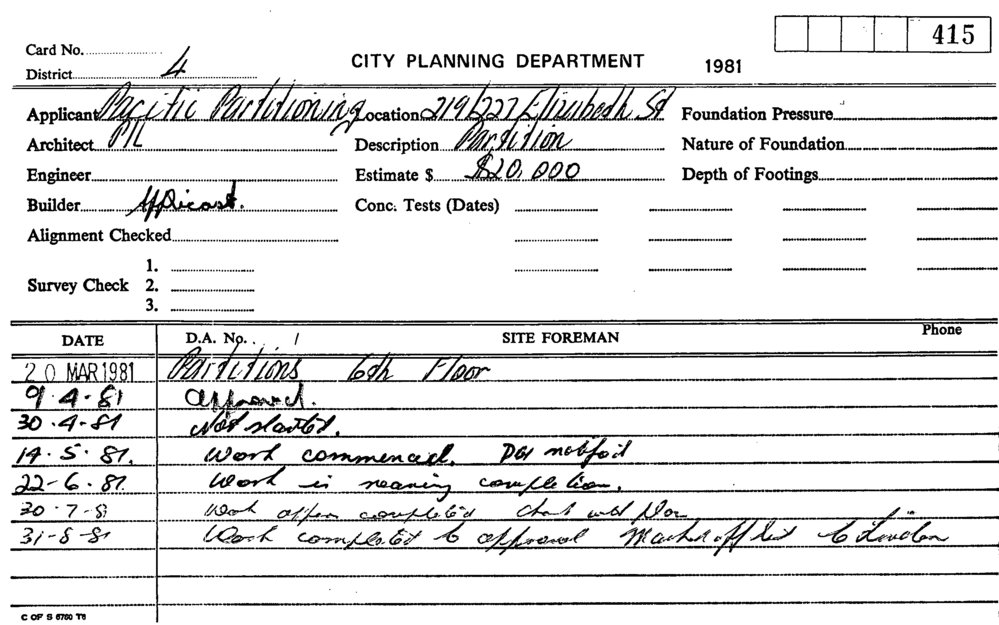 415
Card No.
CITY PLANNING DEPARTMENT 1981
District 4
Applicant Pacific Partitioning Location 219/227 Elizabeth St Foundation Pressure
Architect P/L Description Partition Nature of Foundation
Engineer Estimate $ $20,000 Depth of Footings
Builder Applicant. Conc. Tests (Dates)
Alignment Checked
1.
Survey Check 2.
3.
DATE D.A. No. / SITE FOREMAN Phone
20 MAR 1981 Partitions 6th Floor
9.4.81 approved.
30.4.81 Not started.
14.5.81. Work commenced.
22-6.81. Work is nearing completion.
30.7.81 Work completed
31-8-81 Work completed to approval Marked off list to
C OF S 6760 T6